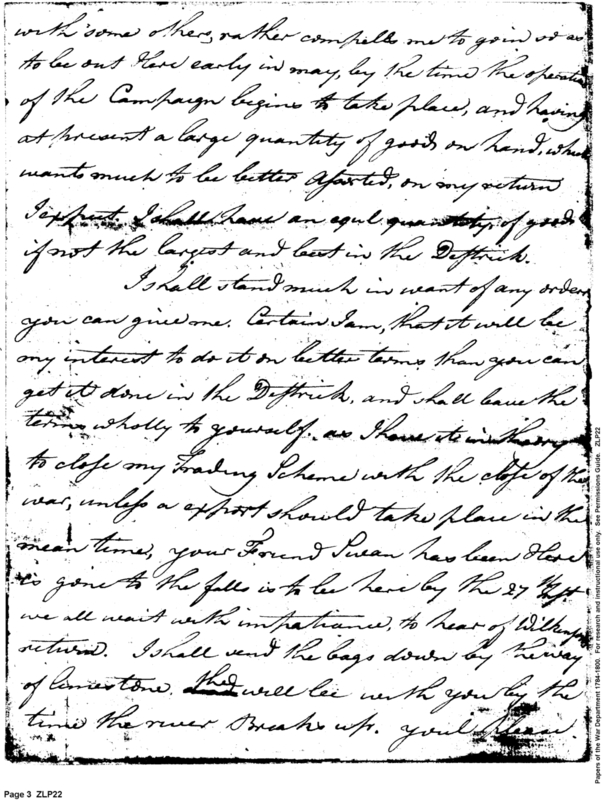 with some others, rather compells me to goin so as
to be out Here early in may, by the time the operation
of the Campaign begins to take place, and having
at present a large quantity of goods on hand, which
wants much to be better Assorted, on my return
I expect I shall have an equl quantity of goods
if not the largest and best in the Destrick.
I shall stand much in want of any orders
you can give me. Certain I am, that it will be
my interest to do it on better terms than you can
get it done in the Destrick, and shall leave the
terms wholly to yourself. as I have it in
to close my Trading Scheme with the close of the
war, unless a export should take place in the
mean time, your Friend Swan has been Here
is gone to the falls is to be here by the 27th Inst.
we all wait with impatiance, to hear of Wilkensons
return. I shall send the bags down by the way
of limestone. they will be with you by the
time the river Breaks up. youl Please
Page 3 ZLP22
Papers of the War Department 1784-1800. For research and instructional use only. See Permissions Guide. ZLP22